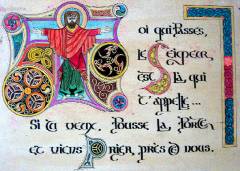 Toi qui passes,
le Seigneur
est là, qui
t'appelle...
Si tu veux, pousse la porte
et viens prier, près de nous.